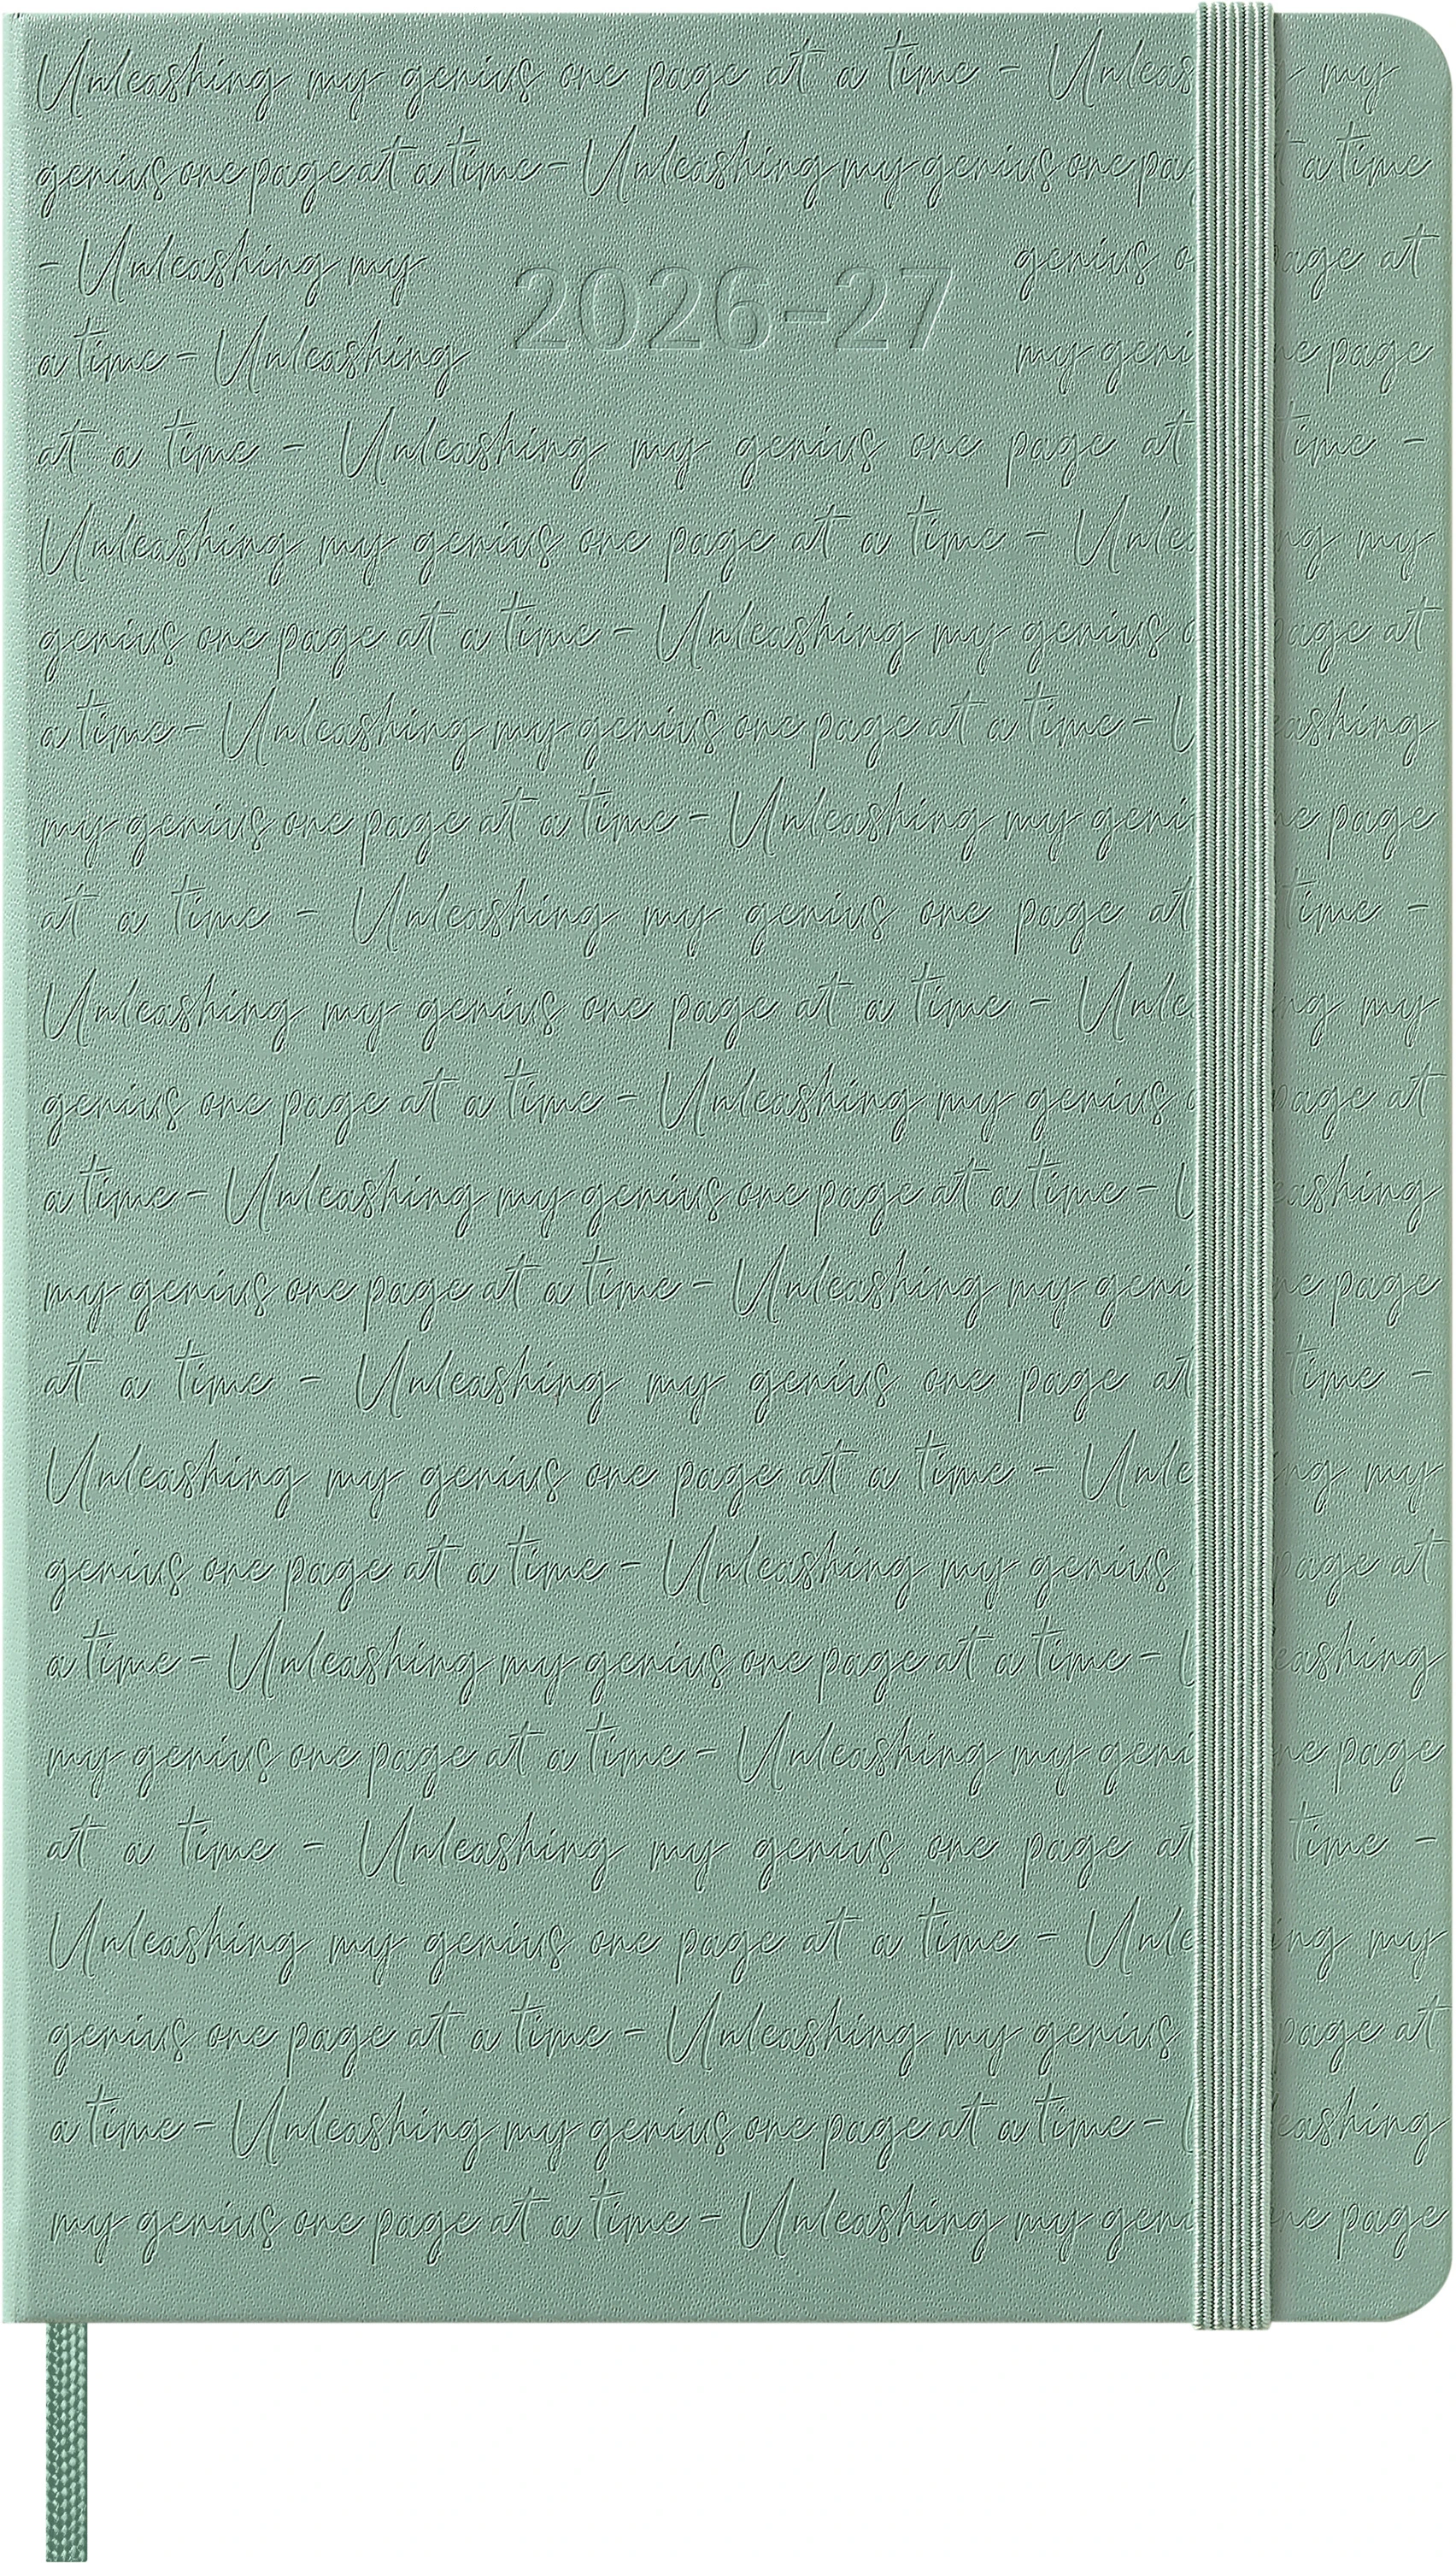 Unleashing my genius one page at a time - Unleas my
genius one page at a time - Unleashing my genius one pag t a time
- Unleashing my 2026-27 genius o age at
a time - Unleashing my geni ne page
at a time - Unleashing my genius one page at time -
Unleashing my genius one page at a time - Unle ng my
genius one page at a time - Unleashing my genius o page at
a time - Unleashing my genius one page at a time - U eashing
my genius one page at a time - Unleashing my geni ne page
at a time - Unleashing my genius one page at time -
Unleashing my genius one page at a time - Unle ng my
genius one page at a time - Unleashing my genius o page at
a time - Unleashing my genius one page at a time - U eashing
my genius one page at a time - Unleashing my geni ne page
at a time - Unleashing my genius one page at time -
Unleashing my genius one page at a time - Unle ng my
genius one page at a time - Unleashing my genius page at
a time - Unleashing my genius one page at a time - U eashing
my genius one page at a time - Unleashing my geni ne page
at a time - Unleashing my genius one page at time -
Unleashing my genius one page at a time - Unle ing my
genius one page at a time - Unleashing my genius page at
a time - Unleashing my genius one page at a time - U eashing
my genius one page at a time - Unleashing my geni ne page